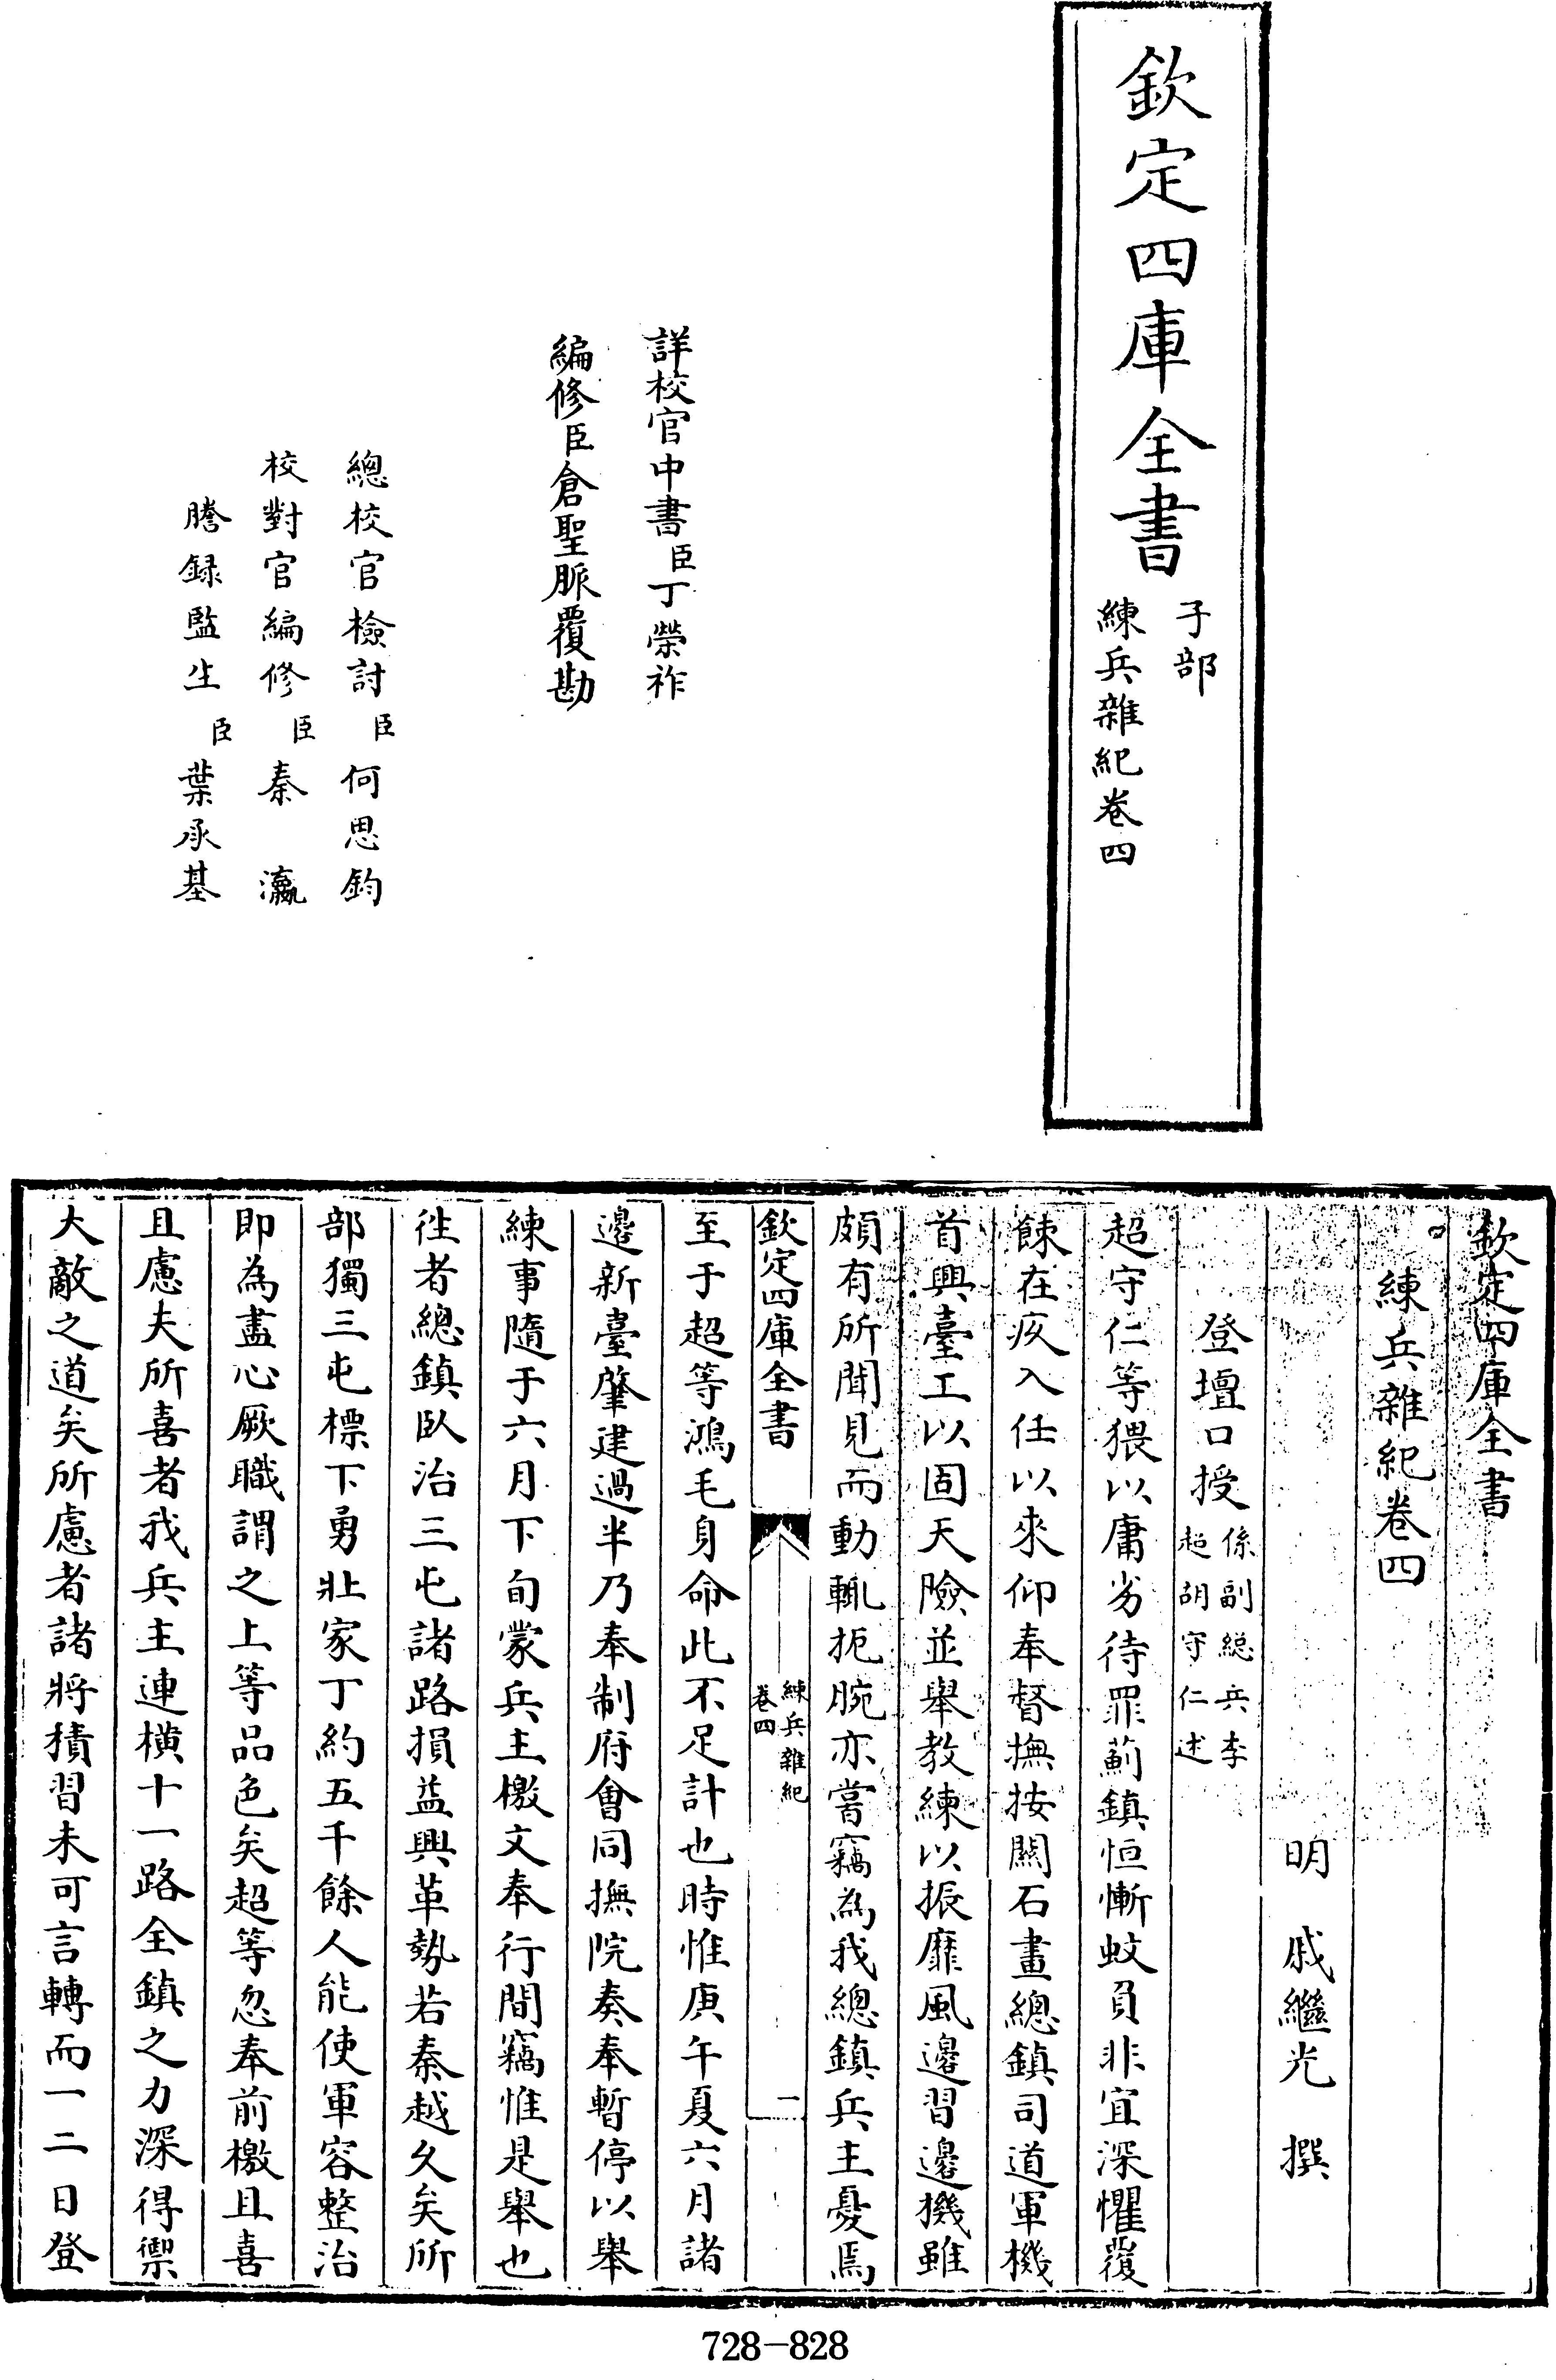 欽定四庫全書
子部
練兵雜紀卷四
詳校官中書臣丁榮祚
編修臣倉聖脈覆勘
總校官檢討臣何思鈞
校對官編修臣秦瀛
謄録監生臣葉承基
欽定四庫全書
練兵雜紀卷四
明 戚繼光 撰
登壇口授係副總兵李
超胡守仁述
超守仁等猥以庸劣待罪薊鎮恒慚蚊負非宜深懼覆
餗在疚入任以來仰奉督撫按關石畫總鎮司道軍機
首興臺工以固天險並舉教練以振靡風邊習邊機雖
頗有所聞見而動輒扼腕亦嘗竊為我總鎮兵主憂焉
欽定四庫全書
練兵雜紀
卷四
一
至于超等鴻毛身命此不足計也時惟庚午夏六月諸
邊新臺肇建過半乃奉制府會同撫院奏奉暫停以舉
練事隨于六月下旬蒙兵主檄文奉行間竊惟是舉也
徃者總鎮臥治三屯諸路損益興革勢若秦越久矣所
部獨三屯標下勇壯家丁約五千餘人能使軍容整治
即為盡心厥職謂之上等品色矣超等忽奉前檄且喜
且慮夫所喜者我兵主連横十一路全鎮之力深得禦
大敵之道矣所慮者諸將積習未可言轉而一二日登
728-828